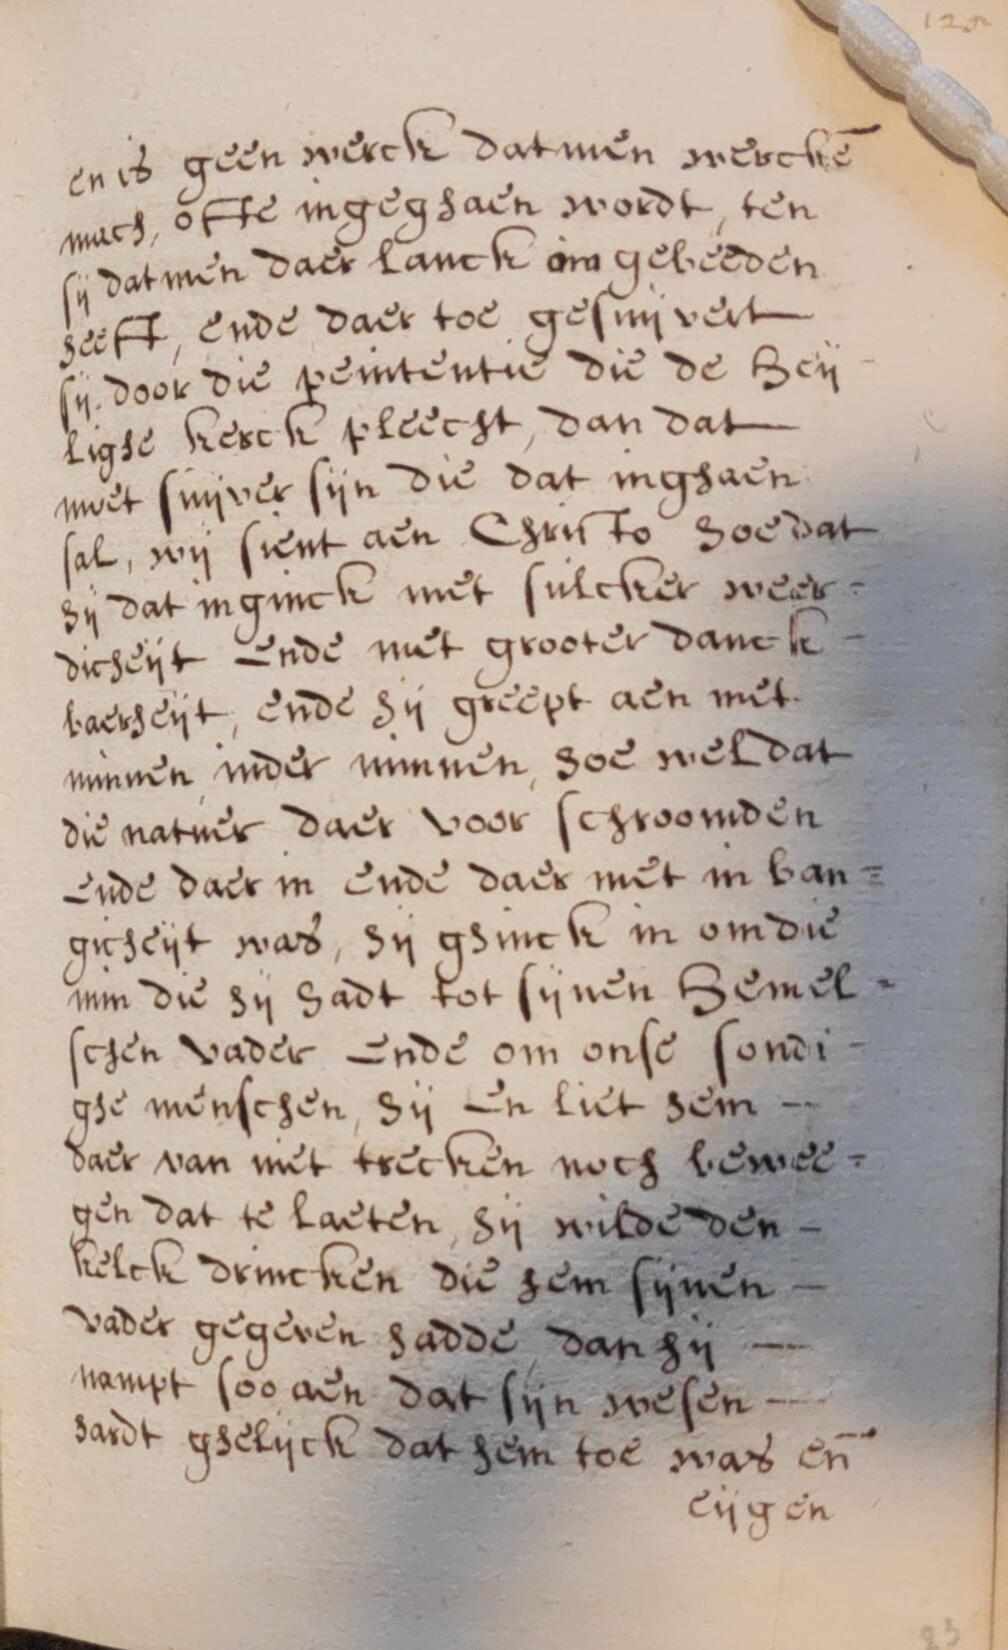 en is geen werck datmen werckē
mach, offte ingeghaen wordt, ten
sij datmen daer lanck om gebeeden
heeft, ende daer toe gesuijvert
sij. door die peintentie die de heij
lighe kerck pleecht, dan dat
moet suijver sijn die dat inghaen
sal, wij sient aen Christo hoe dat
hij dat inginck met sulcker weer-
dicheijt Ende met grooter danck-
baerheijt, ende hij greept aen met
minnen inder minnen, hoe wel dat
die natuer daer voor schroomden
Ende daer in ende daer met in ban=
gicheijt was, hij ghinck in om die
min die hij hadt tot sijnen hemel-
schen vader Ende om onse sondi-
ghe menschen, hij En liet hem --
daer van niet trecken noch bewee=
gen dat te laeten, hij wilde den -
kelck drincken die hem sijnen -
vader gegeven hadde, dan hij —
nampt soo aen dat sijn wesen —
hardt ghelijck dat hem toe was en̄
eijgen